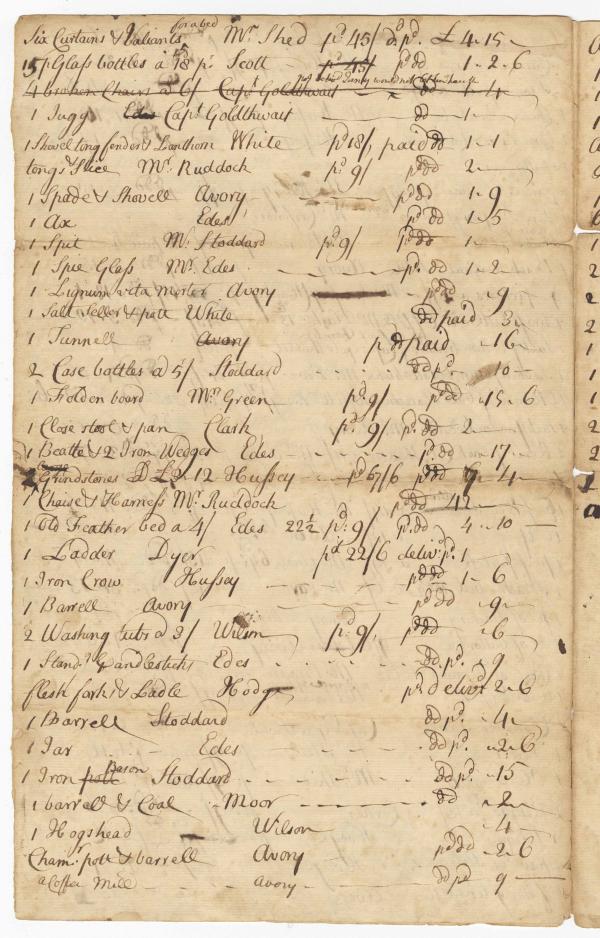 for a bed
Six Curtains & Valiants Mr. Shed pd 45/ dd. pd. £ 4 .. 15 ..
15 Glass bottles a 18 pr. Scott - pd 45/ pd dd 1 .. 2 .. 6
4 broken Chairs a 6/ Capt Goldthwait dd 1 .. 4
1 Jugg Edes Capt. Goldthwait dd 1 ..
1 Shovel tong fender & Lanthorn White pd 18/ paid dd 1 .. 1
tongs & Slice Mr. Ruddock pd. 9/ pd dd 2
1 Spade & Shovell Avory pd dd 1 .. 9
1 Ax Edes pd dd 1 .. 5
1 Spit Mr. Stoddard pd. 9/ pd dd 1 ..
1 Spie Glass Mr. Edes pd. dd 1 .. 2 ..
1 Lignum vita Morter Avory pd dd .. 9
1 Salt Seller & pott White dd paid .. 3
1 Tunnell Avory pd dd paid .. 16 ..
2 Case bottles a 5/ Stoddard dd pd. 10 -
1 Folden board Mrs Green pd. 9/ pd dd .. 15 .. 6
1 Close stool & pan Clark pd. 9/ pd. dd 2
1 Beatle & 2 Iron Wedges Edes pd. dd .. 17 ..
2 Grindstones D L 12 Hussey pd 67/6 pd dd 9 .. 4 ..
1 Chaise & Harness Mr. Ruddock pd dd 42
1 Old Feather bed a 4/ Edes 22½ pd. 9/ pd. dd 4 .. 10 -
1 Ladder Dyer pd 22/6 delivd. pd. 1
1 Iron Crow Hussey pd dd 1 .. 6
1 Barrell Avory pd dd .. 9 ..
2 Washing tubs a 3/ Wilson pd. 9/ pd dd .. 6
1 Stand. & Candlesticks Edes dd. pd. 9
flesh fork & Ladle Hodge pd. delivd 2 .. 6
1 Barrell Stoddard dd pd. .. 4 ..
1 Jar Edes dd pd. .. 2 .. 6
Bason
1 Iron pott Stoddard dd pd. .. 15
1 barrell & Coal Moor dd .. 2
1 Hogshead Wilson .. 4
Cham. pott & barrell Avory pd dd .. 2 .. 6
a Coffee Mill avory dd pd 9